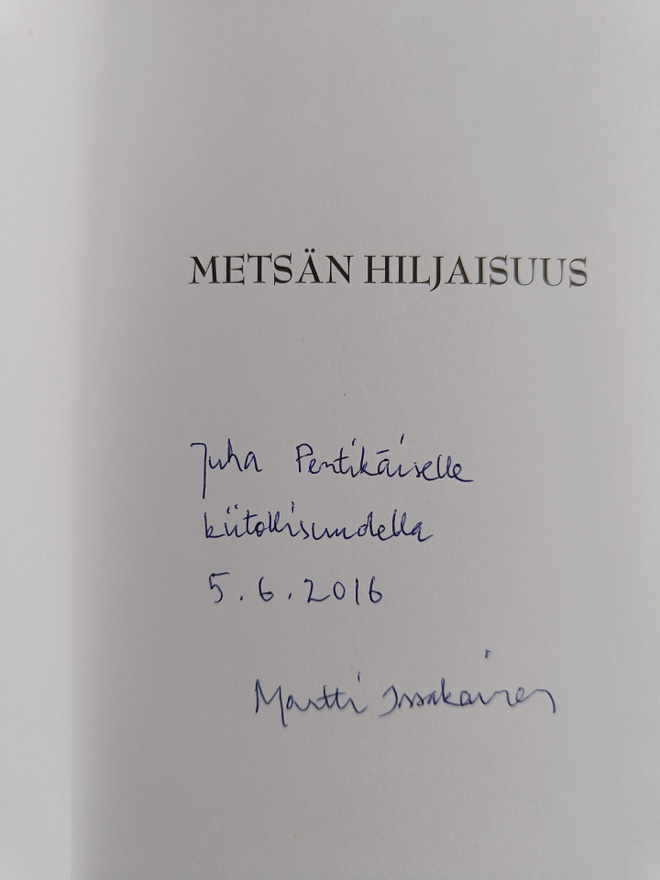 METSÄN HILJAISUUS
Juha Pentikäiselle
kiitollisuudella
5.6.2016
Martti Issakainen